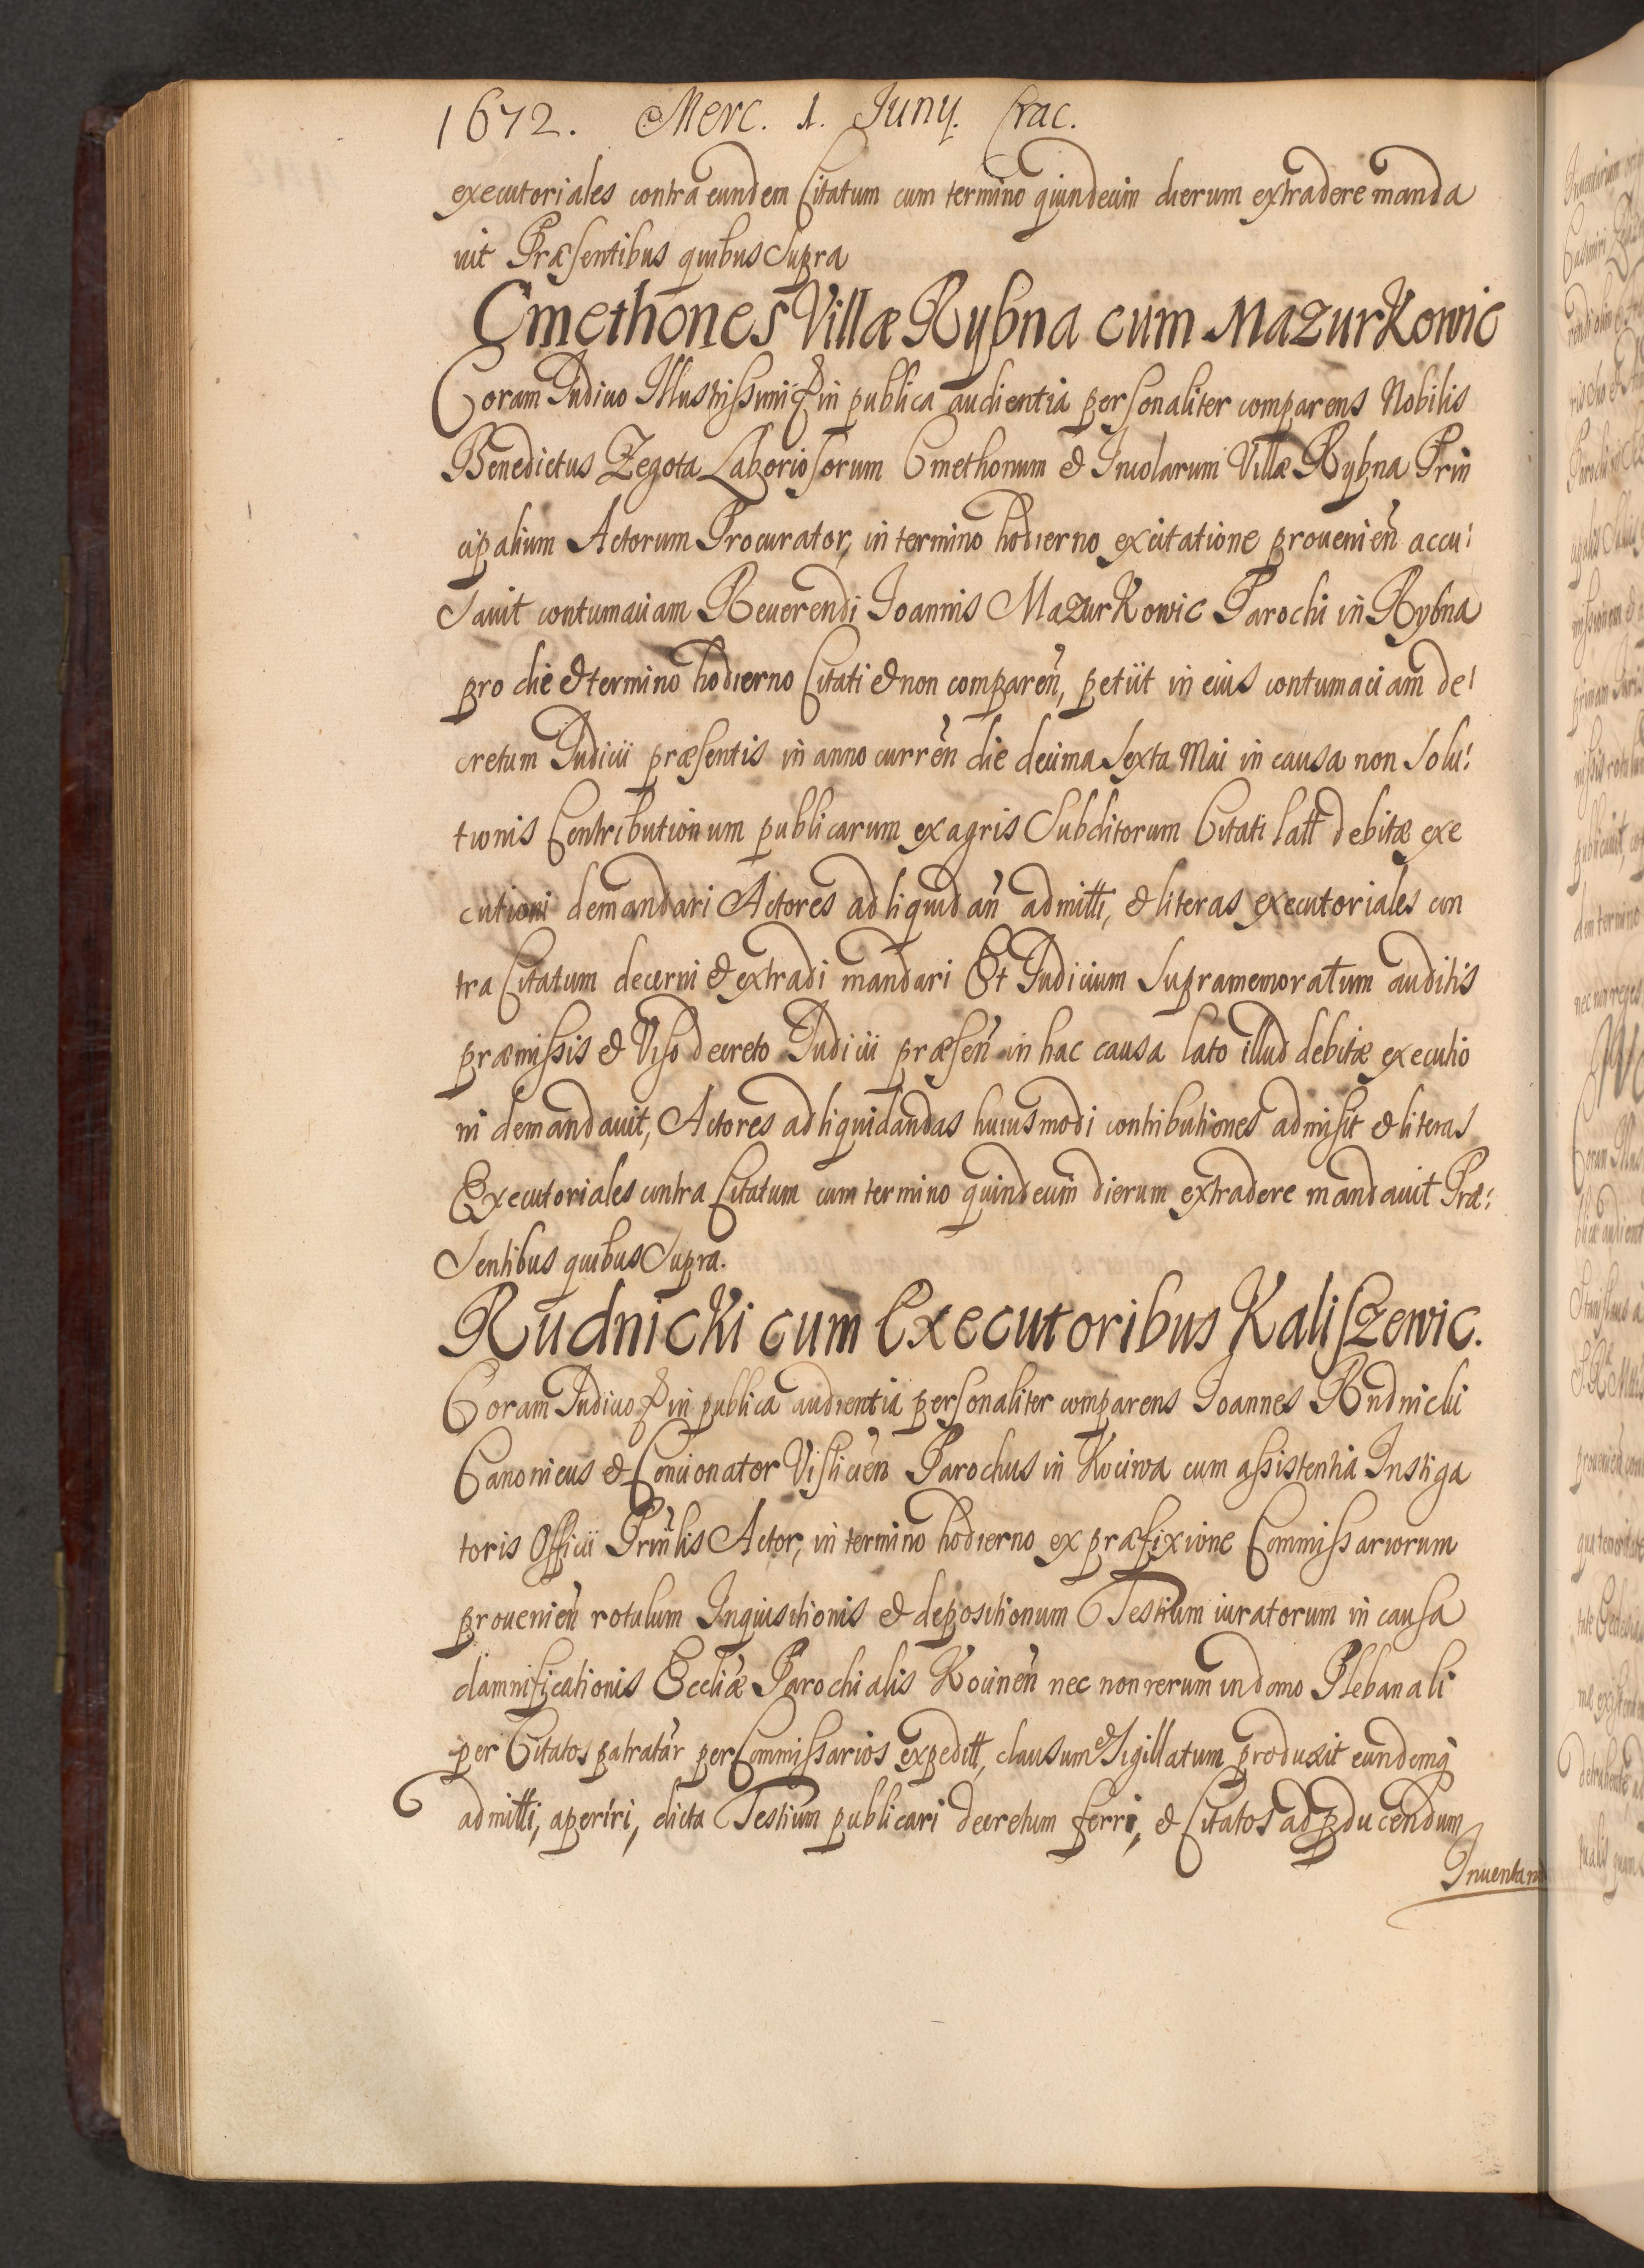 1672. Merc. 1. Juny. Crac.
executoriales contra eundem Citatum cum termino quindecim dierum extradere manda
uit Præsentibus quibus Supra
Cmethones Villæ Rybna cum MazurKowic
Coram Judicio Illustrissimi in publica audientia personaliter comparens Nobilis
Benedictus Zegota Laboriosorum Cmethonum & Incolarum Villæ Rybna Prin
cipalium Actorum Procurator, in termino hodierno ex citatione prouenien̄ accu:
Sauit contumaciam Reuerendi Joannis MazurKowic Parochi in Rybna
pro die & termino hodierno Citati & non comparen̄, petiit in eius contumaciam de:
cretum Judicii præsentis in anno curren̄ die decima Sexta Mai in causa non Solu:
tionis Contributionum publicarum ex agris Subditorum Citati latt debitæ exe
cutioni demandari Actores ad liquidan̄ admitti, & literas executoriales con
tra Citatum decerni & extradi mandari Et Judicium Supramemoratum auditis
præmissis & Viso decreto Judicii præsen̄ in hac causa lato illud debitæ executio
ni demandauit, Actores ad liquidandas huiusmodi contributiones admisit & literas
Executoriales contra Citatum cum termino quindecim dierum extradere mandauit Præ:
Sentibus quibus Supra.
RudnicKi cum Executoribus Kaliszewic.
Coram Judicio in publica audientia personaliter comparens Joannes Rudnicki
Canonicus & Concionator Visliciēn Parochus in Kociwa cum assistentia Instiga
toris Officii Prin̄lis Actor, in termino hodierno ex præfixione Commissariorum
prouenien̄ rotulum Inquisitionis & depositionum Testium iuratorum in causa
damnificationis Eccl̄iæ Parochialis Kocinen̄ nec non rerum in domo Plebanali
per Citatos patratar̄ per Commissarios expeditt, clausum & Sigillatum produxit eundemq́
admitti, aperiri, dicta Testium publicari decretum ferri, & Citatos ad ꝓducendum